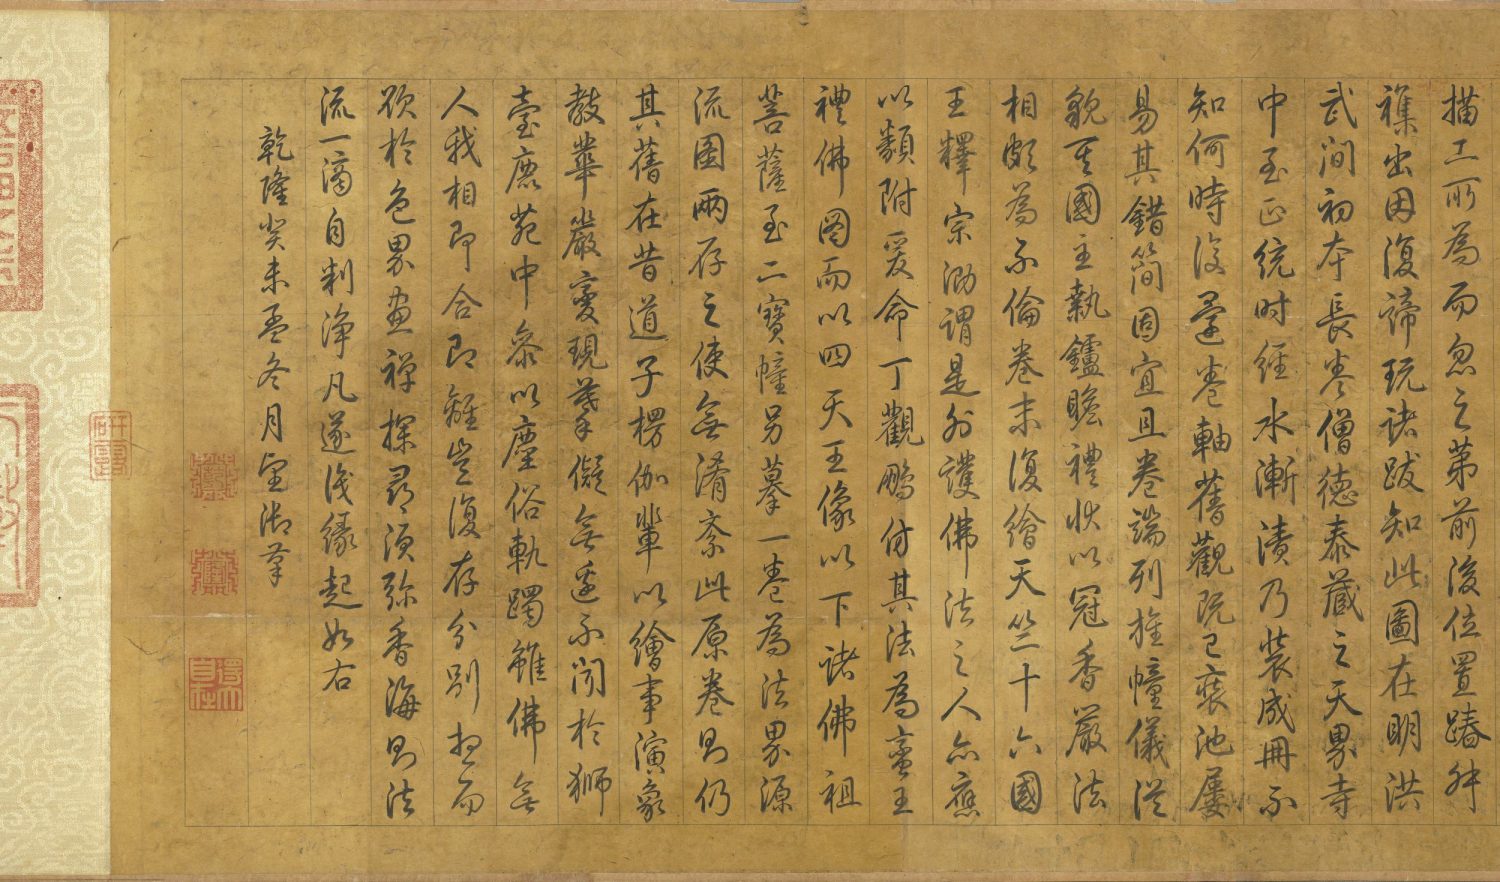 描工所為而忽之第前後位置踳舛
襍出因復諦玩諸跋知此圖在明洪
武間初本長卷僧德泰藏之天界寺
中至正統時經水漸漬乃裝成冊不
知何時復還卷軸舊觀既已裝池屢
易其錯簡固宜且卷端列旌幢儀從
貌其國主執鑪瞻禮狀以冠香嚴法
相頗為不倫卷末復繪天竺十六國
王釋宗泐謂是外護佛法之人亦應
以類附爰命丁觀鵬仿其法為蠻王
禮佛圖而以四天王像以下諸佛祖
菩薩至二寶幢另摹一卷為法界源
流圖兩存之使無淆紊此原卷則仍
其舊在昔道子楞伽輩以繪事演象
教華嚴變現摹儗無遺不聞於獅
臺鹿苑中參以塵俗軌躅雖佛無
人我相即合即離豈復存分別想而
欲於色界畫禪探尋須弥香海則法
流一滴自判淨凡遂識緣起如右
乾隆癸未孟冬月望御筆